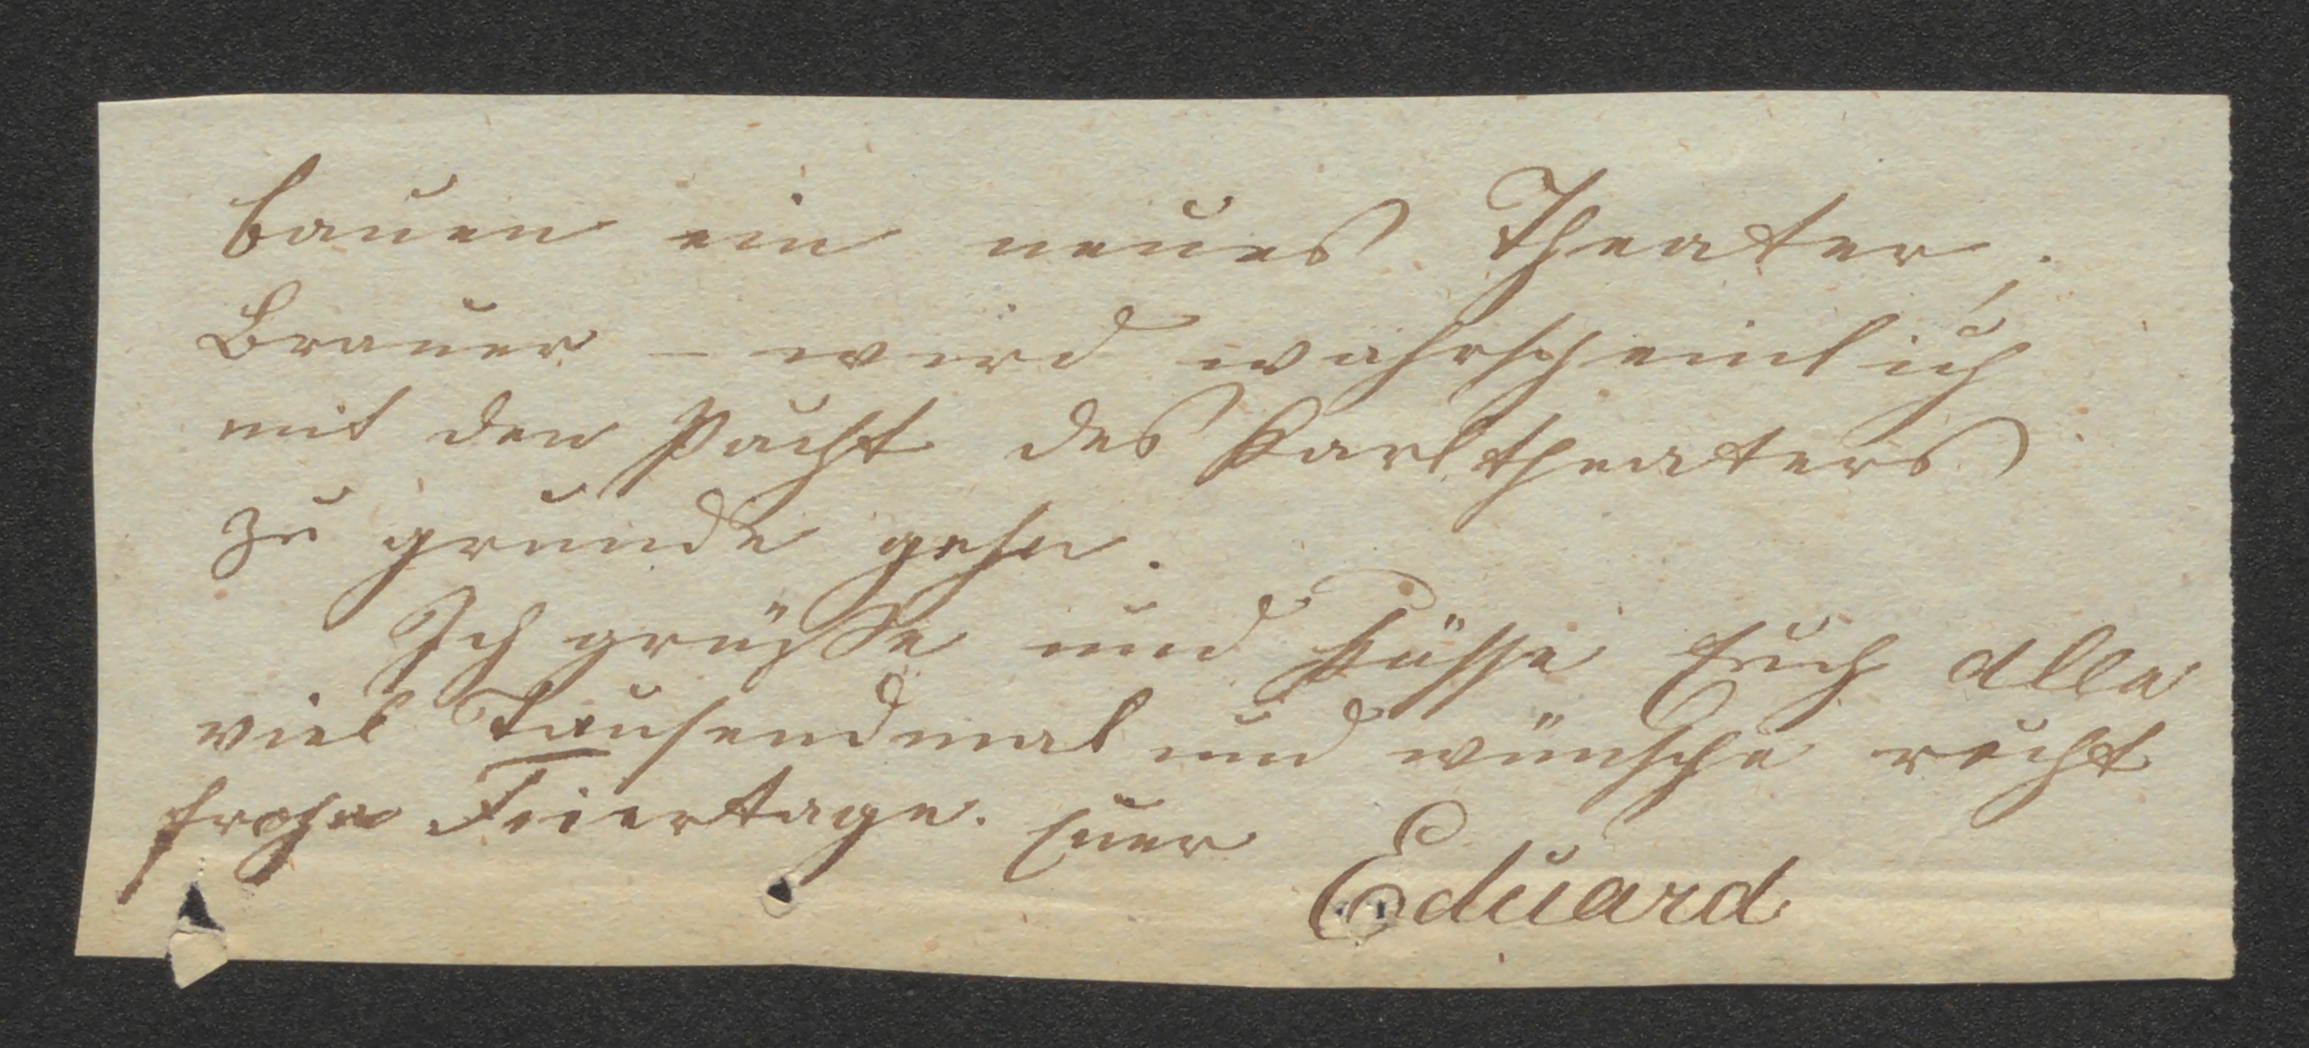 bauen ein neues Theater.
Brauer – wird wahrscheinlich
mit den Pacht des Karltheaters
zu grunde gehn.
Ich grüße und küsse Euch alle
viel Tausendmal und wünsche recht
frohe Feiertage. Euer Eduard